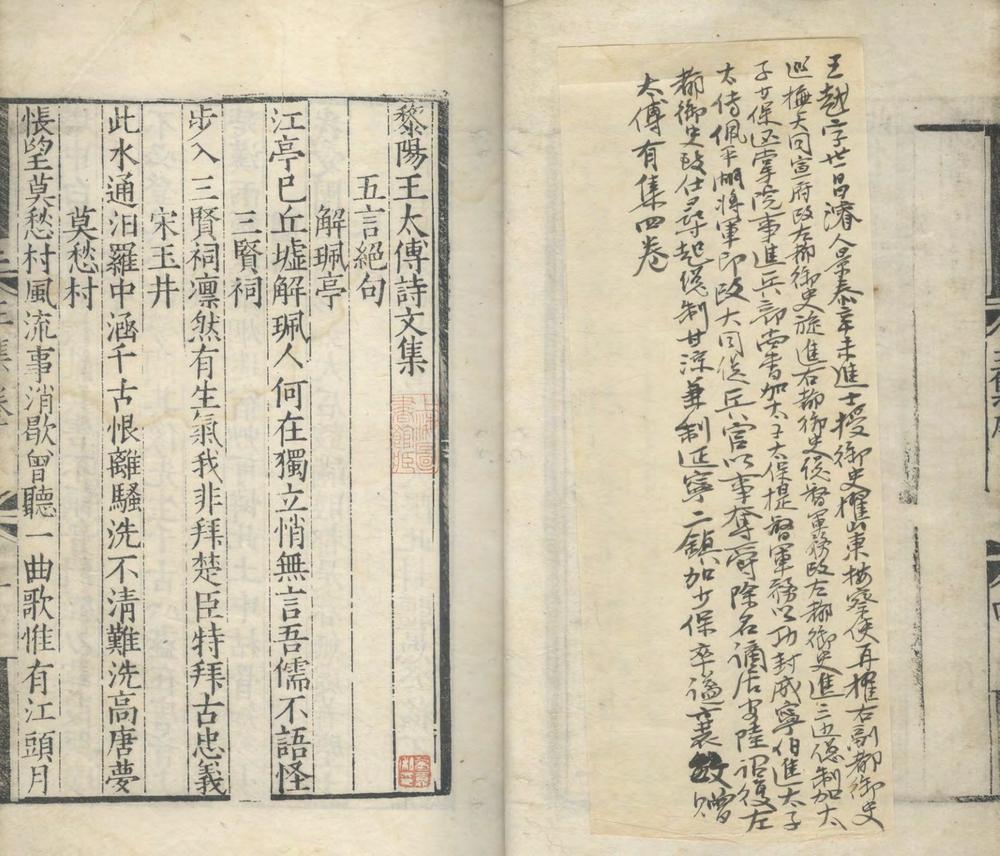 王越字世昌濬人景泰辛未進士授御史擢山東按察使再擢右副都御史
巡撫大同宣府改左都御史旋進右都御史總督軍務改左都御史進三邊總制加太
子少保還掌院事進兵部尚書加太子太保提督軍務以功封威寧伯進太子
太傅佩平胡將軍印改大同後兵官以事奪爵除名謫居安陸詔復左
都御史致仕尋起總制甘涼兼制延寧二鎮加少保卒謚襄敏贈
太傅有集四卷
黎陽王太傅詩文集
五言絕句
解珮亭
江亭已丘墟解珮人何在獨立悄無言吾儒不語怪
三賢祠
步入三賢祠凛然有生氣我非拜楚臣特拜古忠義
宋玉井
此水通汨羅中涵千古恨離騷洗不清難洗高唐夢
莫愁村
悵望莫愁村風流事消歇曾聽一曲歌惟有江頭月